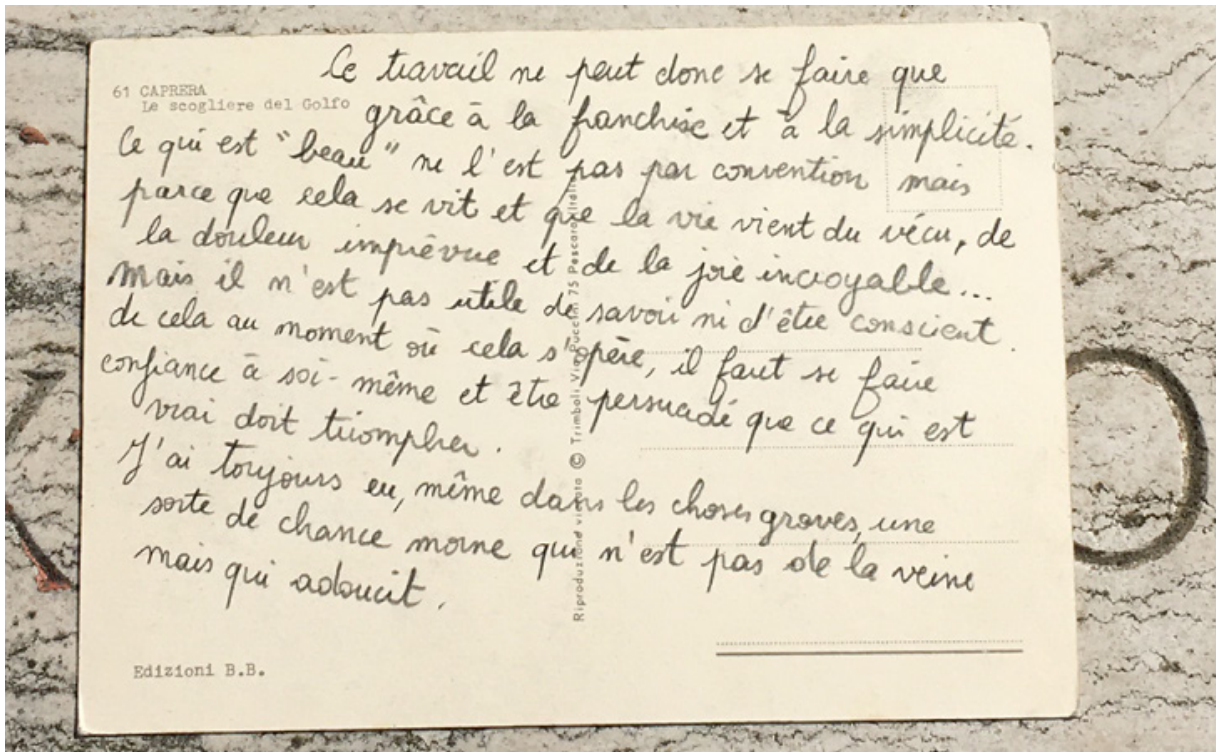 61 CAPRERA
Le scogliere del Golfo
Ce travail ne peut donc se faire que
grâce à la franchise et à la simplicité.
Ce qui est "beau" ne l'est pas par convention mais
parce que cela se vit et que la vie vient du vécu, de
la douleur imprévue et de la joie incroyable...
Mais il n'est pas utile de savoir ni d'être conscient
de cela au moment où cela s'opère, il faut se faire
confiance à soi-même et être persuadé que ce qui est
vrai doit triompher.
J'ai toujours eu, même dans les choses graves, une
sorte de chance morne qui n'est pas de la veine
mais qui adoucit.
Riproduzione vietata © Trimboli Via Puccini 75 Pescara
Edizioni B.B.